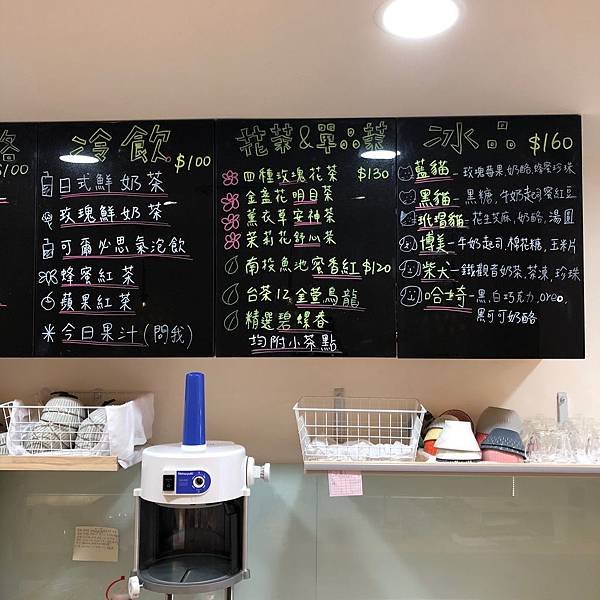 冷飲
$100
日式鮮奶茶
玫瑰鮮奶茶
可爾必思氣泡飲
蜂蜜紅茶
蘋果紅茶
今日果汁(問我)
$100
花茶&單品茶
四種玫瑰花茶 $130
金盞花明目茶
薰衣草安神茶
茉莉花舒心茶
南投魚池蜜香紅 $120
台茶12金萱烏龍
精選碧螺春
均附小茶點
冰品 $160
藍貓-玫瑰莓果,奶酪,蜂蜜珍珠
黑貓-黑糖,牛奶起司蜜紅豆
玳瑁貓-花生芝麻,奶酪,湯圓
博美-牛奶起司,棉花糖,玉米片
柴犬-鐵觀音奶茶,茶凍,珍珠
哈士奇-黑,白巧克力,oreo,
黑可可奶酪